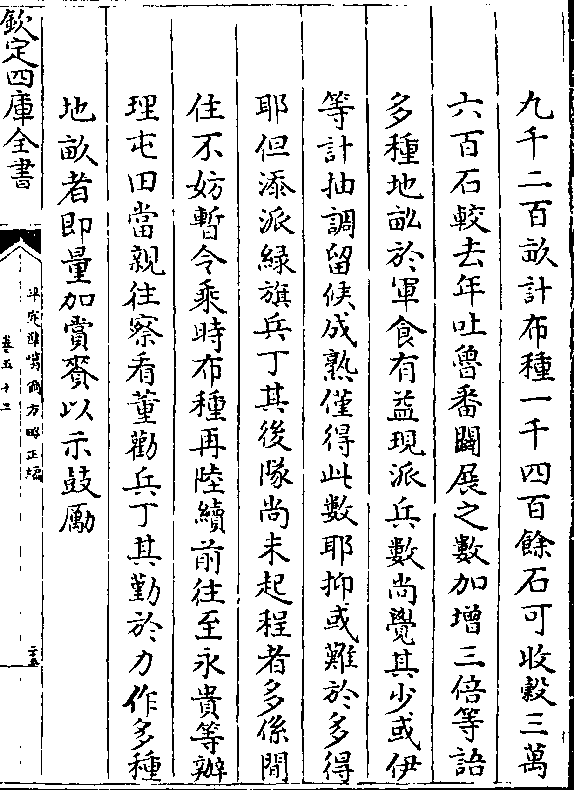 九千二百畝計布種一千四百餘石可收穀三萬
六百石較去年吐魯番闢展之數加增三倍等語
多種地畝於軍食有益現派兵數尚覺其少或伊
等計抽調留候成熟僅得此數耶抑或難於多得
耶但添派綠旗兵丁其後隊尚未起程者多係閒
住不妨暫令乘時布種再陸續前往至永貴等辦
理屯田當親往察看董勸兵丁其勤於力作多種
地畝者即量加賞賚以示鼓勵
欽定四庫全書
平定準噶爾方略正編
卷五十二